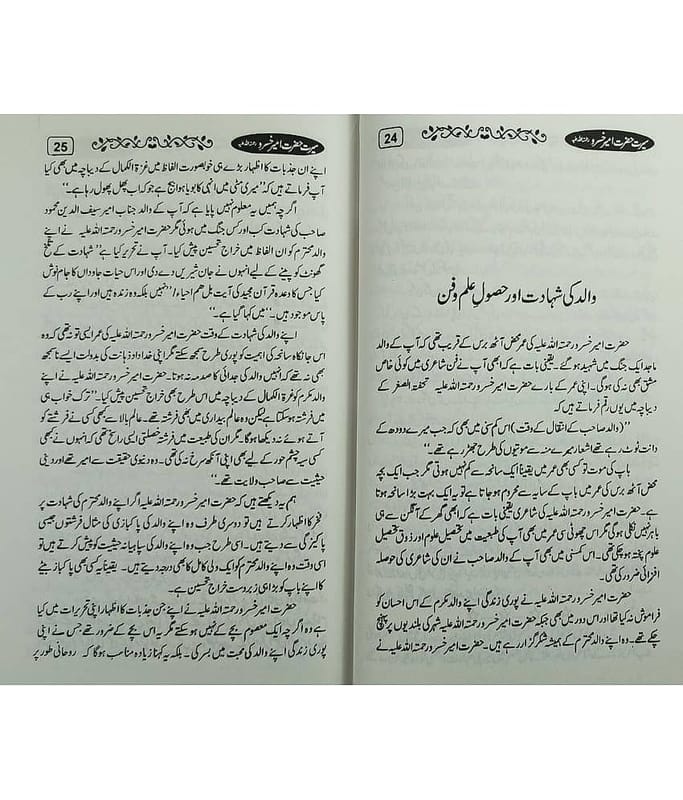 24
سیرت حضرت امیر خسرو رحمۃ اللہ علیہ
والد کی شہادت اور حصولِ علم و فن
حضرت امیر خسرو رحمتہ اللہ علیہ کی عمر محض آٹھ برس کے قریب تھی کہ آپ کے والد
ماجد ایک جنگ میں شہید ہو گئے۔ یقینی بات ہے کہ ابھی آپ نے فن شاعری میں کوئی خاص
مشق بھی نہ کی ہوگی۔ اپنی عمر کے بارے حضرت امیر خسرو رحمتہ اللہ علیہ تحفتہ الصغر کے
دیباچہ میں یوں رقم فرماتے ہیں کہ
’’(والد صاحب کے انتقال کے وقت) اس کم سنی میں بھی کہ جب میرے دودھ کے
دانت ٹوٹ رہے تھے اشعار میرے منہ سے موتیوں کی طرح جھڑ رہے تھے۔‘‘
باپ کی موت تو کسی بھی عمر میں یقیناً ایک سانحے سے کم نہیں ہوتی مگر جب ایک بچہ
محض آٹھ برس کی عمر میں باپ کے سایہ سے محروم ہو جاتا ہے تو یہ ایک بہت بڑا سانحہ ہوتا
ہے۔ حضرت امیر خسرو رحمتہ اللہ علیہ کی شاعری یقینی بات ہے کہ ابھی گھر کے آنگن سے ہی
باہر نہیں نکلی ہوگی مگر اس چھوٹی سی عمر میں بھی آپ کی طبیعت میں تحصیل علوم اور ذوق تحصیل
علوم پختہ ہو چکی تھی۔ اس کمسنی میں بھی آپ کے والد صاحب نے ان کی شاعری کی حوصلہ
افزائی ضرور کی تھی۔
حضرت امیر خسرو رحمتہ اللہ علیہ نے پوری زندگی اپنے والد مکرم کے اس احسان کو
فراموش نہ کیا تھا اور اس دور میں بھی جبکہ حضرت امیر خسرو رحمتہ اللہ علیہ شہر کی بلندیوں پر پہنچ
چکے تھے۔ وہ اپنے والد محترم کے ہمیشہ شکر گزار رہے ہیں۔ حضرت امیر خسرو رحمتہ اللہ علیہ نے
25
سیرت حضرت امیر خسرو رحمۃ اللہ علیہ
اپنے ان جذبات کا اظہار بڑے ہی خوبصورت الفاظ میں غرۃ الکمال کے دیباچہ میں بھی کیا
آپ فرماتے ہیں کہ ’’میری مٹی میں انہی کا بویا ہوا بیج ہے جو کہ اب پھل پھول رہا ہے۔‘‘
اگرچہ ہمیں یہ معلوم نہیں پایا ہے کہ آپ کے والد جناب امیر سیف الدین محمود
صاحب کی شہادت کب اور کس جنگ میں ہوئی مگر حضرت امیر خسرو رحمتہ اللہ علیہ نے اپنے
والد محترم کو ان الفاظ میں خراج تحسین پیش کیا۔ آپ نے تحریر کیا ہے ’’شہادت کے تلخ
گھونٹ کو پینے کے لیے انہوں نے جان شیریں دے دی اور اس حیات جاوداں کا جام نوش
کیا جس کا وعدہ قرآن مجید کی آیت بل ھم احیاء / ’’نہیں بلکہ وہ زندہ ہیں اور اپنے رب کے
پاس موجود ہیں۔‘‘ میں کہا گیا ہے۔
اپنے والد کی شہادت کے وقت حضرت امیر خسرو رحمتہ اللہ علیہ کی عمر ایسی تو نہ تھی کہ وہ
اس جانکاہ سانحہ کی اہمیت کو پوری طرح سمجھ سکتے مگر اپنی خداداد ذہانت کی بدولت ایسے ناسمجھ
بھی نہ تھے کہ انہیں والد کی جدائی کا صدمہ نہ ہوتا۔ حضرت امیر خسرو رحمتہ اللہ علیہ نے اپنے
والد مکرم کو غرۃ الکمال کے دیباچہ میں اس طرح بھی خراج تحسین پیش کیا ہے۔ ’’ترک خواب ہی
میں فرشتہ ہو سکتا ہے لیکن وہ عالم بیداری میں بھی فرشتہ تھے۔ عالم بالا سے بھی کسی نے فرشتے کو
آتے ہوئے نہ دیکھا ہوگا۔ مگر ان کی طبیعت میں فرشتہ خصلتی ایسی راسخ تھی کہ انہوں نے کبھی
کسی سیہ چشم حور کے لیے بھی اپنی آنکھ سرخ نہ کی تھی۔ وہ دنیوی حقیقت سے امیر تھے اور دینی
حیثیت سے صاحب ولایت تھے۔‘‘
ہم یہ دیکھتے ہیں کہ حضرت امیر خسرو رحمتہ اللہ علیہ اگر اپنے والد محترم کی شہادت پر
فخر کا اظہار کرتے ہیں تو دوسری طرف وہ اپنے والد کی پاکبازی کی مثال فرشتوں جیسی
پاکیزگی سے دیتے ہیں۔ اسی طرح جب وہ اپنے والد کی سپاہیانہ حیثیت کو پیش کرتے ہیں تو
اسی وقت وہ اپنے والد محترم کو ایک ولی کامل کا بھی درجہ دیتے ہیں۔ یقیناً یہ کسی بھی پاکباز بیٹے
کا اپنے باپ کو بڑا ہی زبردست خراج تحسین ہے۔
حضرت امیر خسرو رحمتہ اللہ علیہ نے اپنے جن جذبات کا اظہار اپنی تحریرات میں کیا
ہے وہ اگرچہ ایک معصوم بچے کے نہیں ہو سکتے مگر یہ اس بچے کے ضرور تھے جس نے اپنی
پوری زندگی اپنے والد کی محبت میں بسر کی۔ بلکہ یہ کہنا زیادہ مناسب ہوگا کہ روحانی طور پر